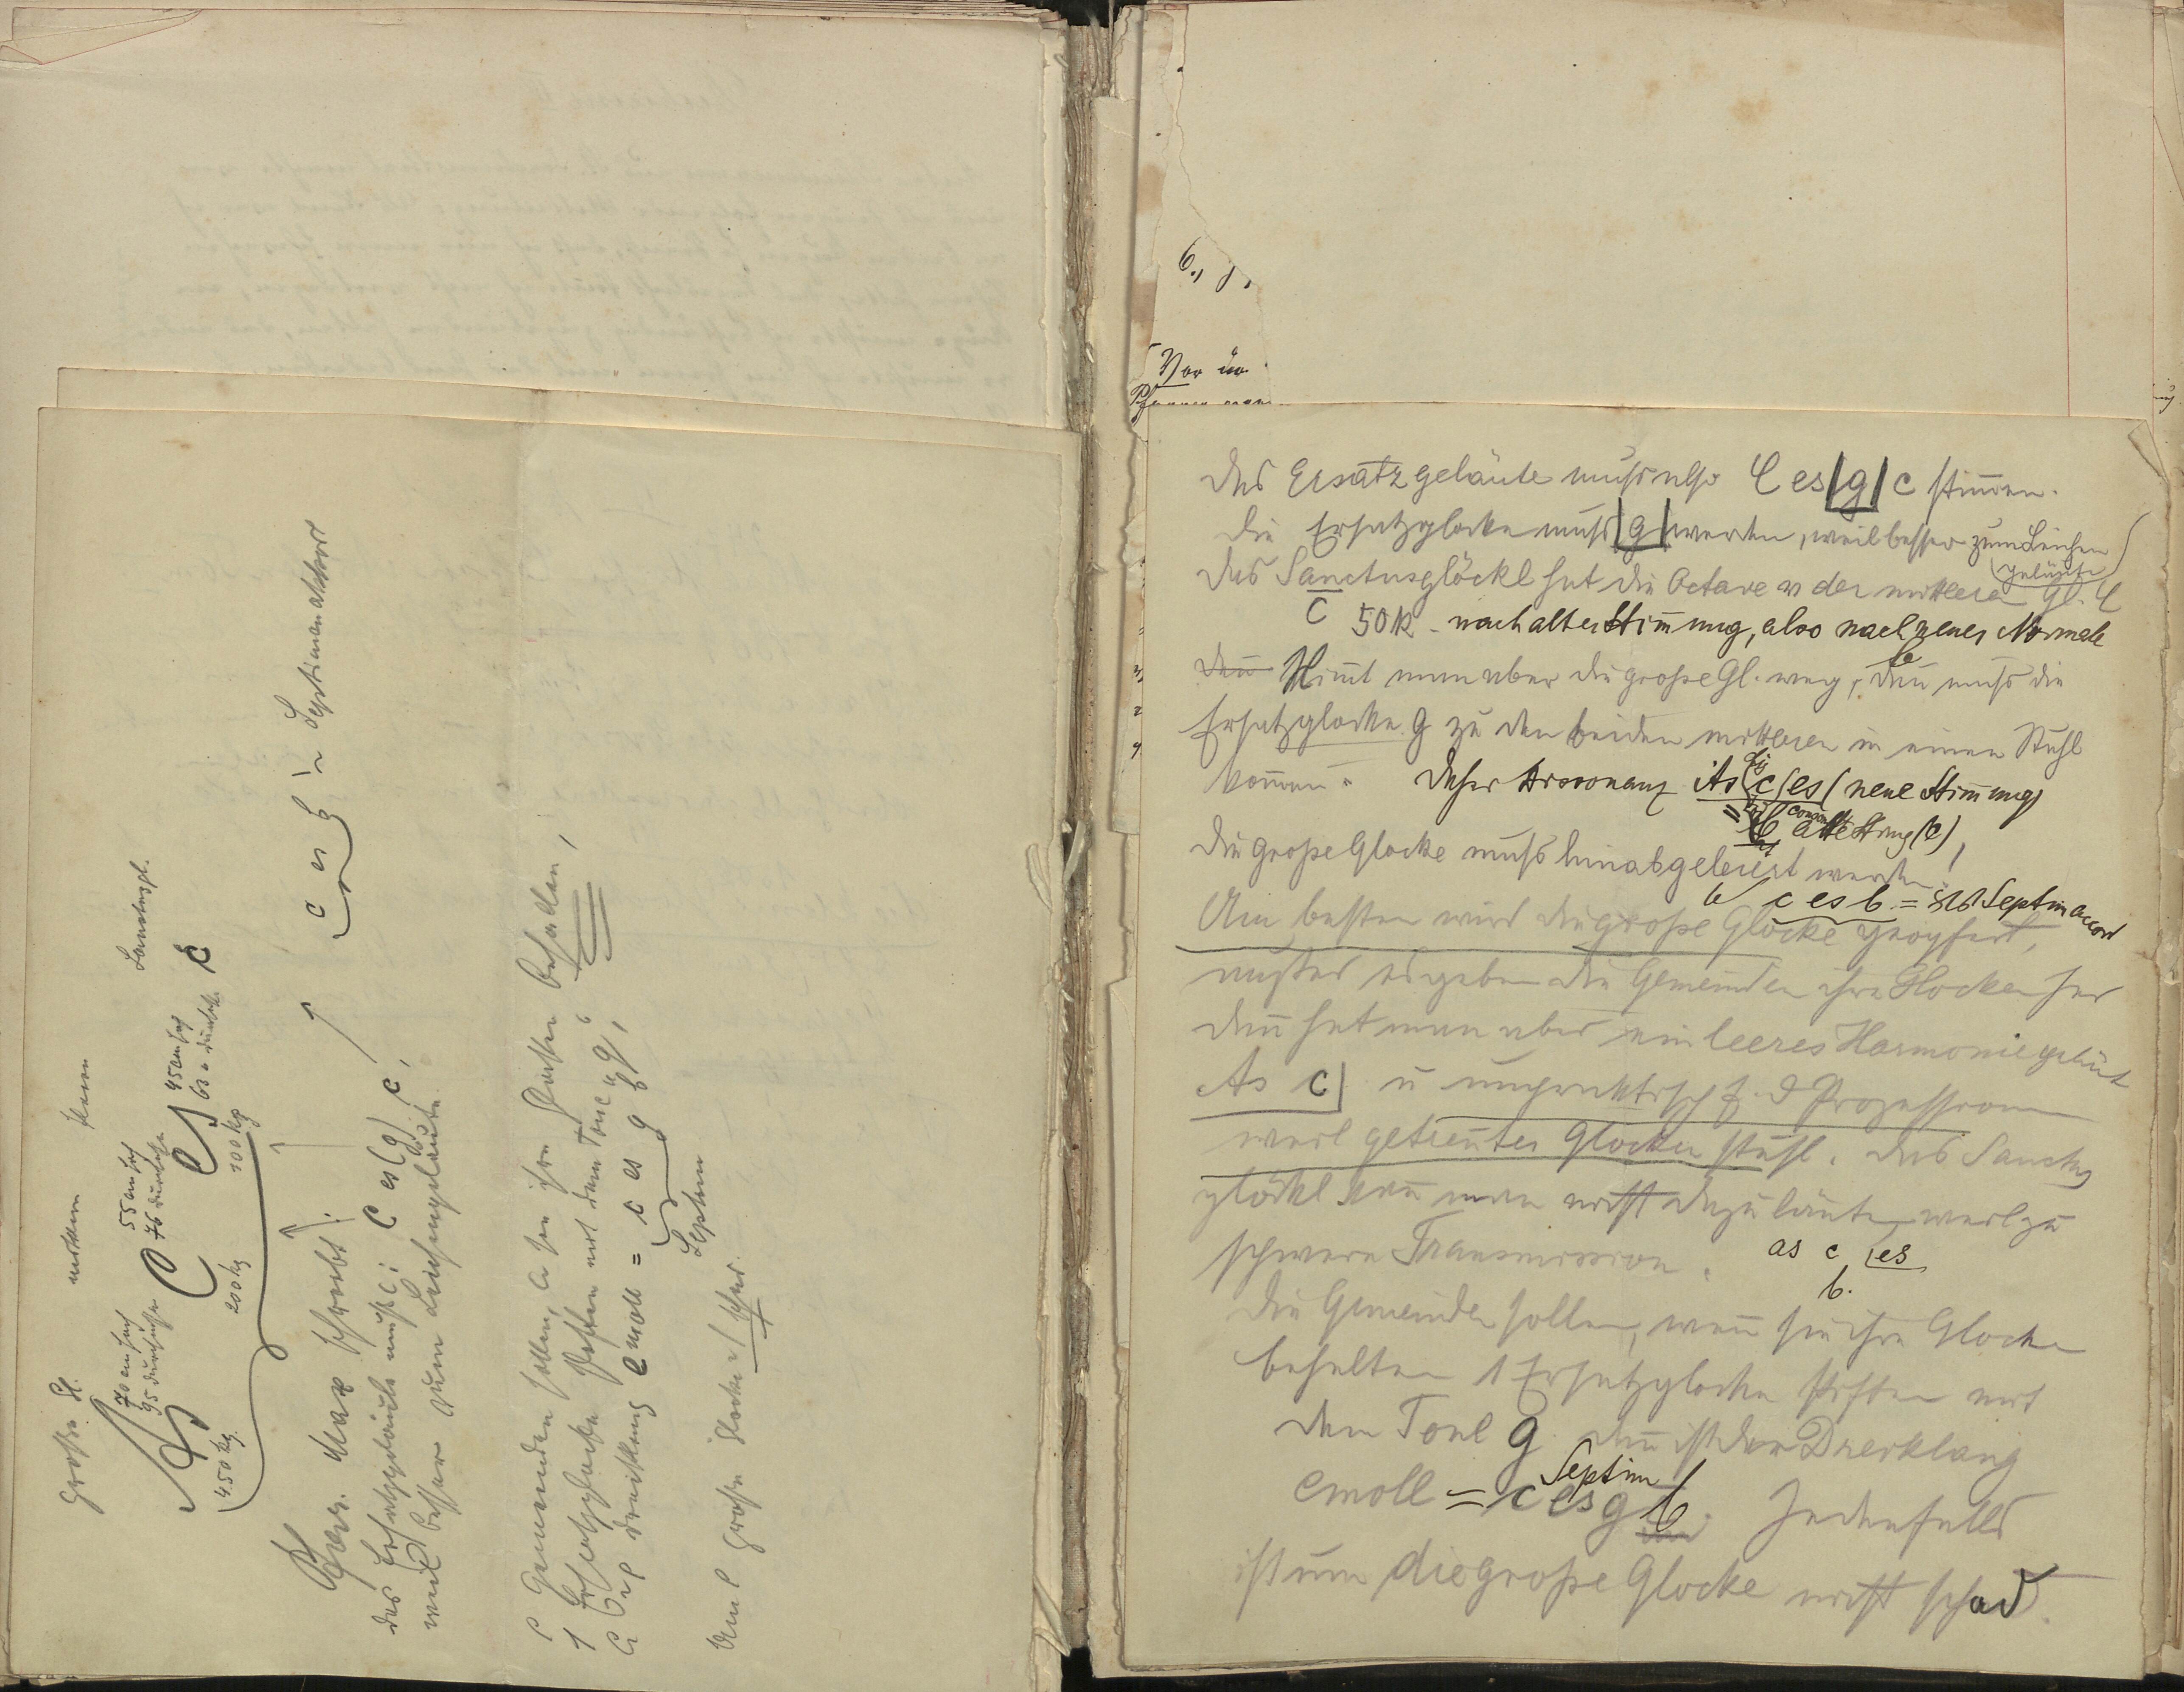 große Gl. mittlere kleine Sanctusgl.
70 cm hoch
95 durchm.
55 cm hoch
76 durchm.
45 cm hoch
62 durchm.
As C es c
450 kg 200 kg 100 kg
c es g Septimenakkord
Pfarr. Max schreibt:
das Ersatzgeläute müßte: C es (g) c,
weil besser zum Leichengeläute
Gemeinden sollen, wenn sie ihre Glocken behalten,
1 Ersatzglocke stiften mit dem Tone "g"
Dreiklang C moll = c es g
Septim
Um die große Glocke ist schad.
6., d,
Vor
Das Ersatzgeläute muß also C es |g| c stim̅en.
Die Ersatzglocke muß |g| werden, weil besser zum Leichen
geläute
Das Sanctusglöckl hat die Octave v der mittleren Gl. C
C 50 k - nach alter Stim̅ung, also nach neuer Normale
Nim̅t man aber die große Gl. weg, dan̅ muß die
Ersatzglocke g zu den beiden mittleren in einen Stuhl
kom̅en. Daher Dissonanz As c es (neue Stim̅ung)
alte Stim̅g (c)
Die große Glocke muß hinabgeleiert werden!
c es b = Septim accord
Am besten wird die große Glocke geopfert,
außer es geben die Gemeinden ihre Glocken her
dan̅ hat man aber ein leeres Harmoniegeläut
As c| u unpraktisch f. d Prozessionen
weil getren̅ter Glockenstuhl. Das Sanctus
glöckl kan̅ man nicht dazu läuten, weil zu
schwere Transmission. as c es
b.
Die Gemeinden sollen, wen̅ sie ihre Glocken
behalten 1 Ersatzglocke stiften mit
dem Tone g dan̅ ist der Dreiklang
Septim
cmoll = c es g b. Jedenfalls
ist um die große Glocke nicht schad.